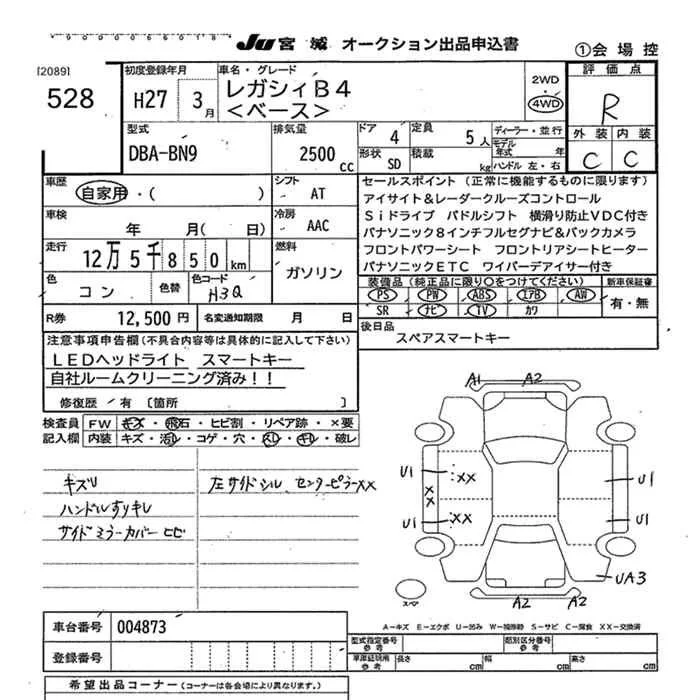 JU 宮城 オークション出品申込書
①会場控
[2089]
528
初度登録年月
H27 3月
車名・グレード
レガシィB4
<ベース>
2WD
4WD
評価点
R
外装 内装
C C
型式
DBA-BN9
排気量
2500cc
ドア 4
定員 5人
形状 SD
積載 kg
ディーラー・並行
モデル年式 年
ハンドル 左・右
車歴
自家用・( )
シフト
AT
車検
年 月( 日)
冷房
AAC
走行
12万5千850km
燃料
ガソリン
色
コン
色替
色コード
H3Q
R券 12,500円
名変通知期限 月 日
セールスポイント (正常に機能するものに限ります)
アイサイト&レーダークルーズコントロール
Siドライブ パドルシフト 横滑り防止VDC付き
パナソニック8インチフルセグナビ&バックカメラ
フロントパワーシート フロントリアシートヒーター
パナソニックETC ワイパーデアイサー付き
装備品 (純正品に限り○をつけてください)
新車保証書
PS PW ABS エアB AW
SR ナビ TV カワ
有・無
後日品
スペアスマートキー
注意事項申告欄(不具合内容等は具体的に記入して下さい)
LEDヘッドライト スマートキー
自社ルームクリーニング済み!!
修復歴/有 [箇所 ]
検査員記入欄
FW キズ・飛石・ヒビ割・リペア跡・×要
内装 キズ・汚レ・コゲ・穴・スレ・キレ・破レ
キズU
ハンドルすりキレ
サイドミラーカバーヒビ
左サイドシル、センターピラーXX
A1 A2
U1 XX U1
XX
U1 XX U1
UA3
A2 A2
スペア
A－キズ E－エクボ U－凹み W－補修跡 S－サビ C－腐食 XX－交換済
車台番号 004873
登録番号
型式指定番号 参考
類別区分番号 参考
車庫証明用 参考
長さ cm 幅 cm 高さ cm
希望出品コーナー(コーナーは各会場により異なります。)